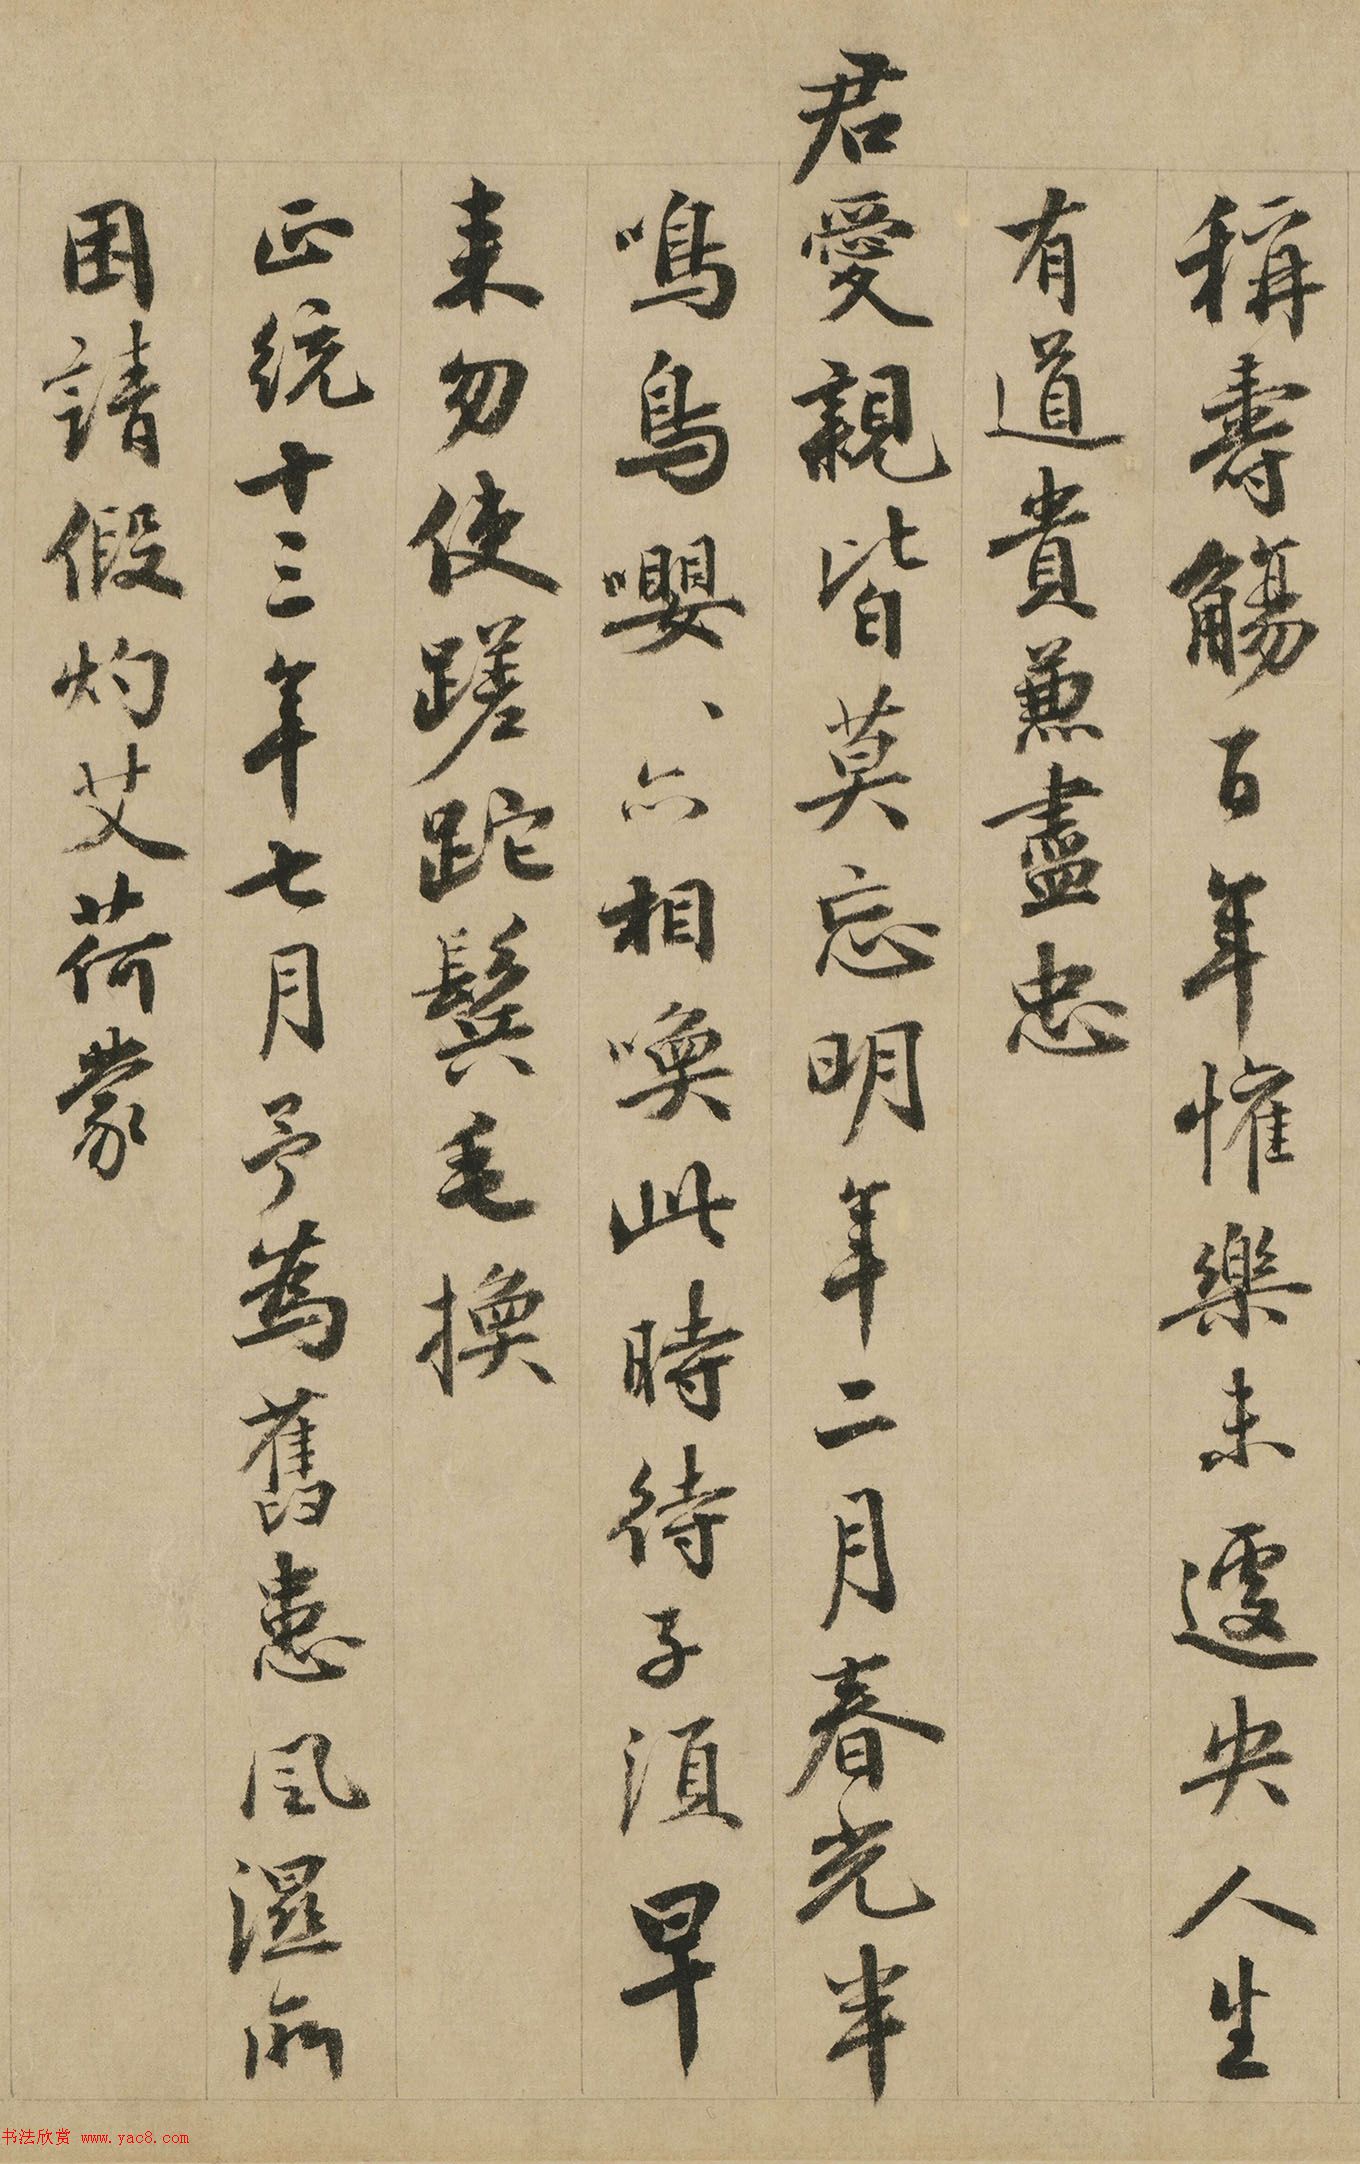 稱壽觴百年懽樂未遽央人生
有道貴兼盡忠
君愛親皆莫忘明年二月春光半
鳴鳥嚶、亦相喚此時待子須早
来勿使蹉跎鬂毛換
正統十三年七月予為舊患風濕所
困請假灼艾荷蒙
书法欣赏 www.yac8.com